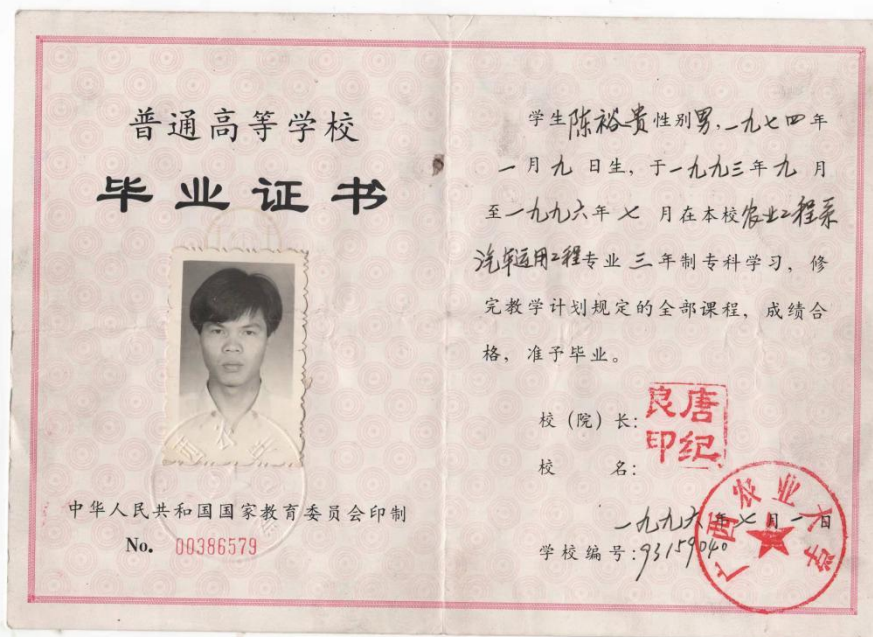 普通高等学校
毕业证书
中华人民共和国国家教育委员会印制
No. 00386579
学生陈裕贵性别男,一九七四年
一月九日生,于一九九三年九月
至一九九六年七月在本校农业工程系
汽车运用工程专业三年制专科学习,修
完教学计划规定的全部课程,成绩合
格,准予毕业。
校(院)长:
唐纪良印
校名:
广西农业大学
一九九六年七月一日
学校编号:93159040